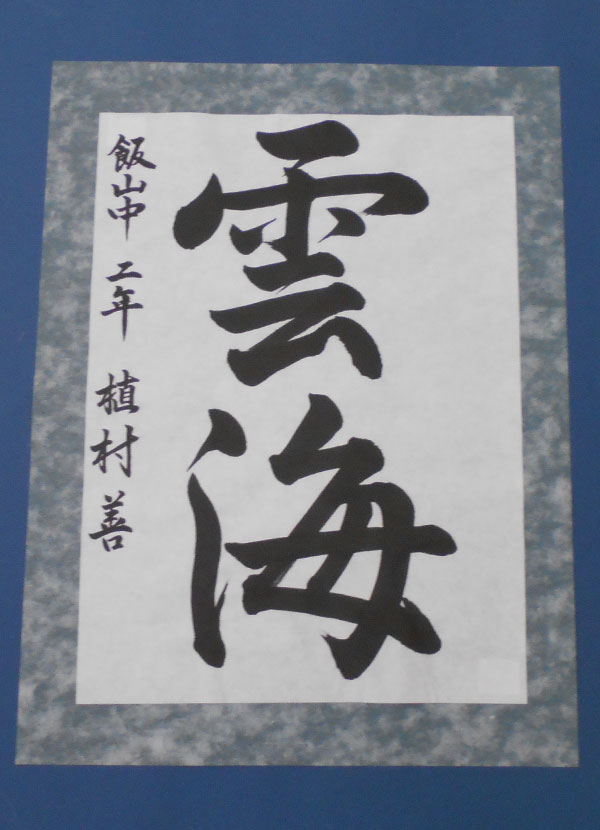 雲海
飯山中 二年 植村 善